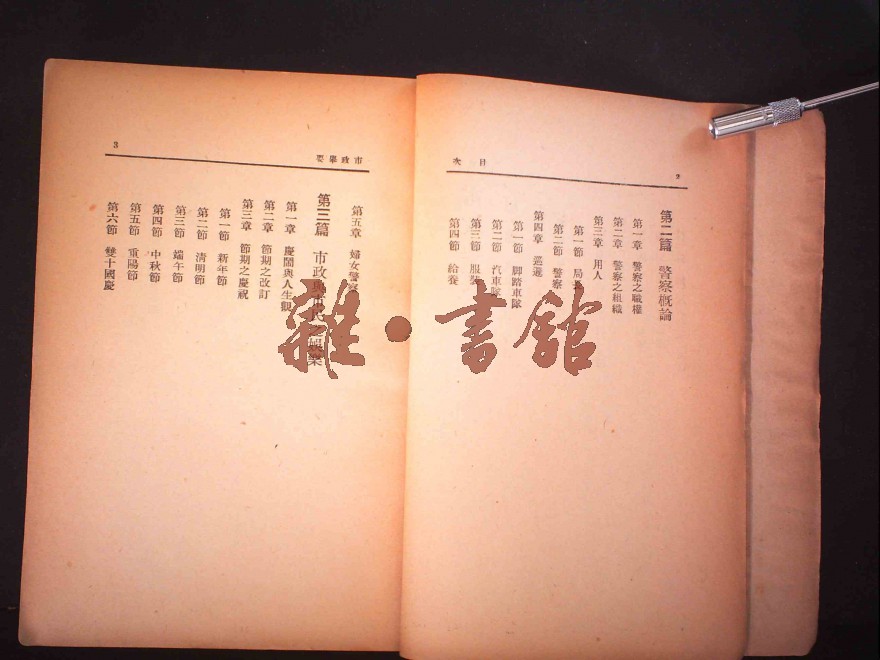 目次
2
第二篇 警察概論
第一章 警察之職權
第二章 警察之組織
第三章 用人
第一節 局長
第二節 警察
第四章 巡邏
第一節 脚踏車隊
第二節 汽車隊
第三節 服裝
第四節 給養
市政舉要
3
第五章 婦女警察
第三篇 市政與市民之娛樂
第一章 慶鬧與人生觀
第二章 節期之改訂
第三章 節期之慶祝
第一節 新年節
第二節 清明節
第三節 端午節
第四節 中秋節
第五節 重陽節
第六節 雙十國慶
雜·書館